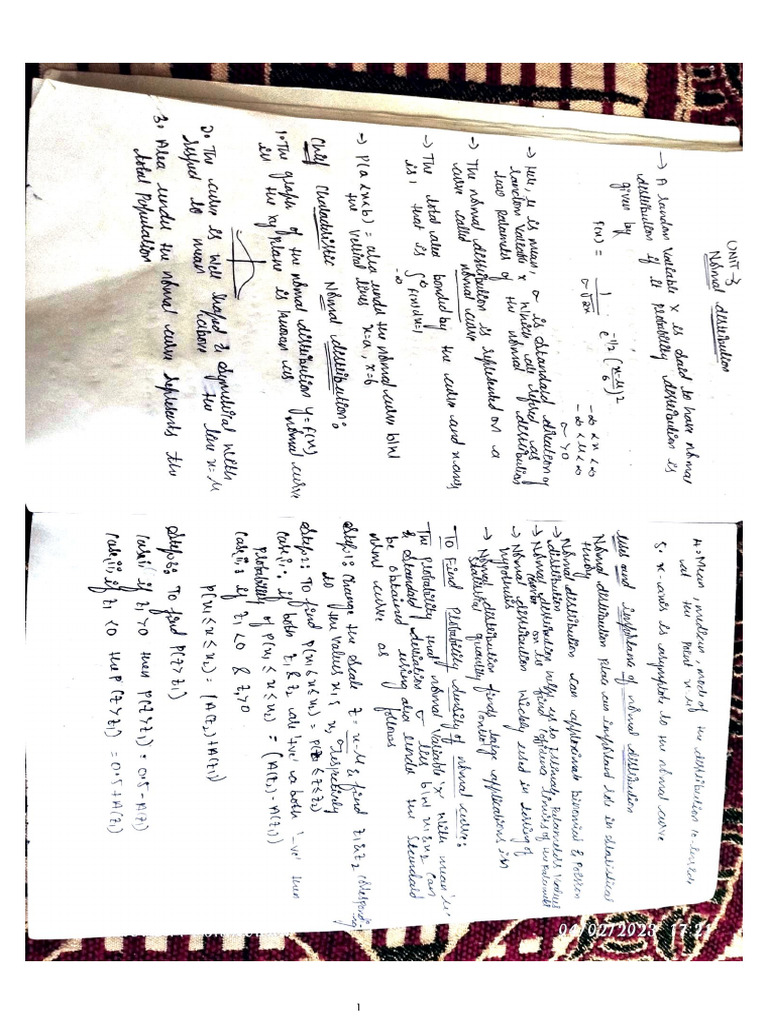 UNIT-3
Normal distribution
→ A random variable X is said to have normal
distribution if it probability distribution is
given by
f(x) = 1/σ√2π e^-1/2 (x-μ/σ)2
-∞ < x < ∞
-∞ < μ < ∞
σ > 0
→ Here, μ is mean, σ is standard of
random variable x which are as
two of the normal distribution
→ The normal distribution is represented on a
curve called normal curve
→ The total area bonded by the curve and x axis
is 1 that is ∫ f(x) dx = 1
∞
-∞
→ P(a < x < b) = area under the normal curve b/w
the vertical lines x=a, x=b
Chief Characteristic Normal distribution:
1. The graph of the normal distribution y = f(x)
in the xy plane is known as normal curve
2. The curve is & symmetrical with
to mean the line x = μ
3. Area under the normal curve represents the
total population
4. Mean, median, mode of the distribution
at the point x = μ
5. x-axis is to the normal curve
uses and of normal distribution
Normal distribution plays an in statistical
theory
Normal distribution can binomial & Poisson
distribution
→ Normal distribution us to parameters
on to find limits of
→ Normal distribution widely used in testing of
hypothesis
→ Normal distribution finds large applications in
Statistical quality control
To Find Probability density of normal curve:
The Probability that normal variable 'x' with mean 'μ'
& Standard deviation σ lies b/w x1 & x2 can
be obtained using area under the Standard
normal curve as follows
Step 1: Change the scale z = x-μ/σ & find z1 & z2
to the values x1 & x2 respectively
Step 2: To find P(x1 ≤ x ≤ x2) = P(z1 ≤ z ≤ z2)
Case i: if both z1 & z2 are '+ve' or both '-ve' then
Probability of P(x1 ≤ x ≤ x2) = (A(z2) - A(z1))
Case ii: if z1 < 0 & z2 > 0
P(x1 ≤ x ≤ x2) = (A(z2) + A(z1)
Step 3: To find P(z > z1)
Case i if z1 > 0 then P(z > z1) = 0.5 - A(z1)
Case ii, if z1 < 0 the P(z > z1) = 0.5 + A(z1)
04/02/2023 17:21
1